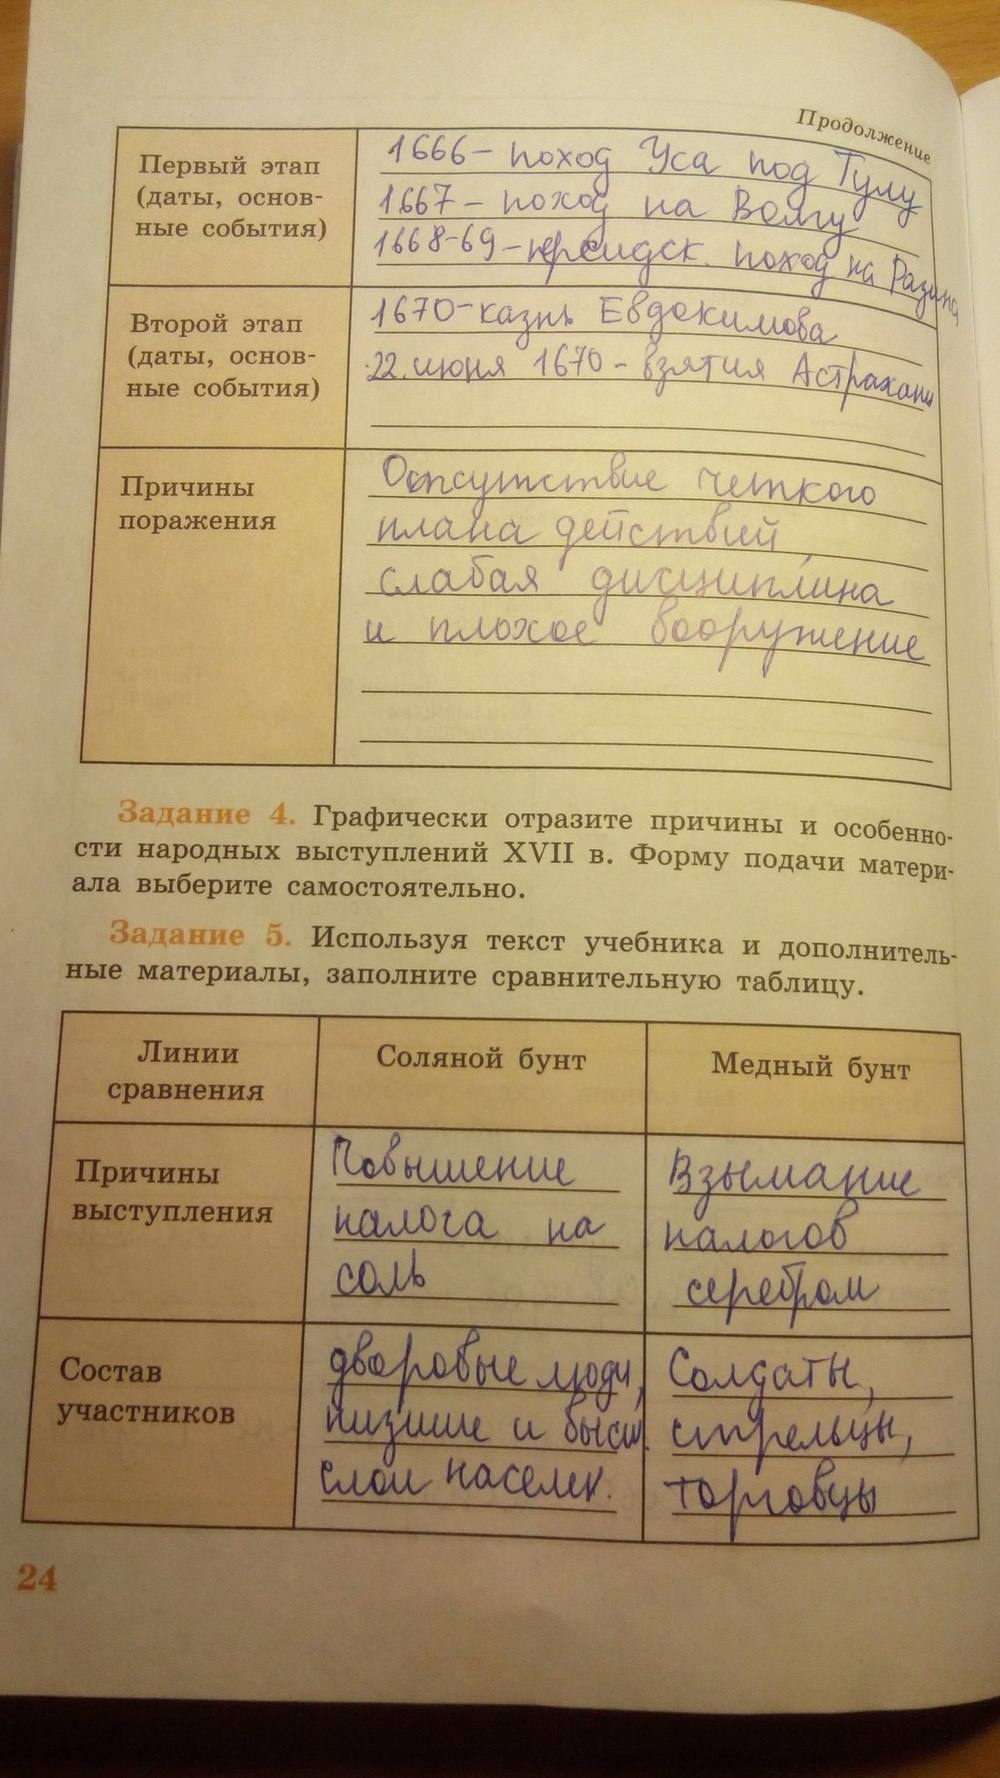 Продолжение
Первый этап
(даты, основ-
ные события)
1666 - поход Уса под Тулу
1667 - поход на Волгу
1668-69 - персидск. поход на Разина
Второй этап
(даты, основ-
ные события)
1670 - казнь Евдокимова
22. июня 1670 - взятия Астрахани
Причины
поражения
Отсутствие четкого
плана действий,
слабая дисциплина
и плохое вооружение
Задание 4. Графически отразите причины и особенно-
сти народных выступлений XVII в. Форму подачи матери-
ала выберите самостоятельно.
Задание 5. Используя текст учебника и дополнитель-
ные материалы, заполните сравнительную таблицу.
Линии
сравнения
Соляной бунт
Медный бунт
Причины
выступления
Повышение
налога на
соль
Взымание
налогов
серебром
Состав
участников
дворовые люди,
низшие и высш.
слои населен.
Солдаты,
стрельцы,
торговцы
24